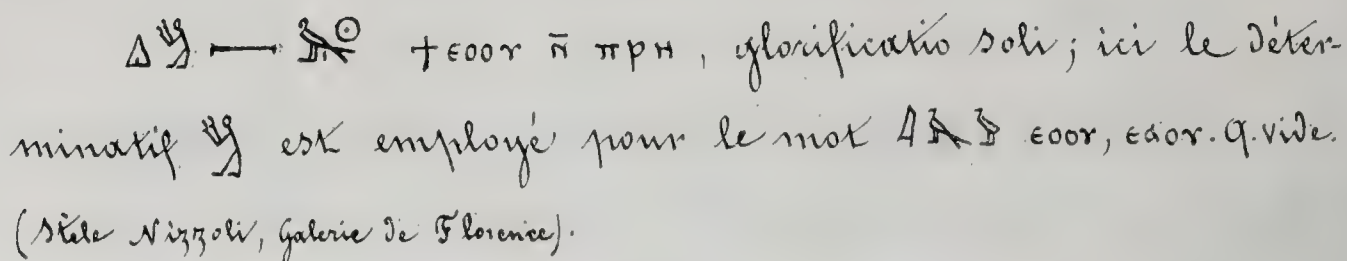 ϯⲉⲟⲟⲩ ⲛ̄ ⲡⲣⲏ, glorificatio soli; ici le déter-
minatif est employé pour le mot ⲉⲟⲟⲩ, ⲉⲁⲟⲩ. Q. vide.
(Stèle Nizzoli, Galerie de Florence).